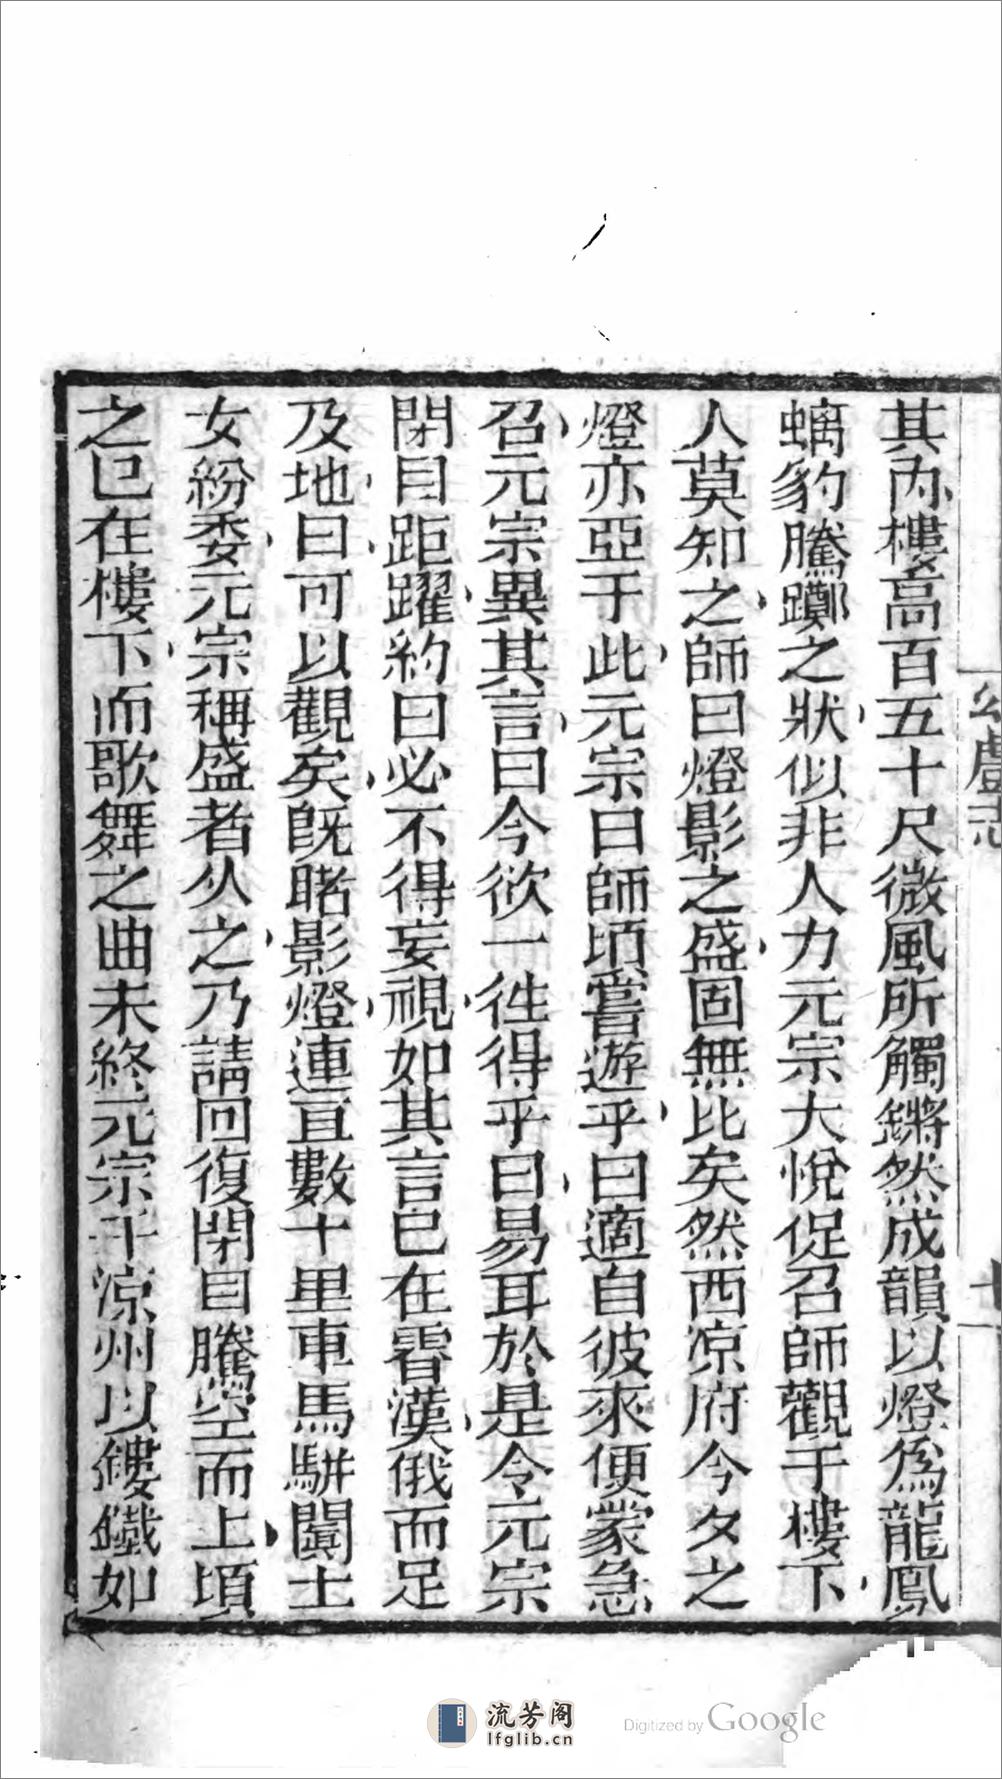 虞志
其內樓高百五十尺微風所觸鏘然成韻以燈爲龍鳳
螭豹騰躑之狀似非人力元宗大悅促召師觀于樓下
人莫知之師曰燈影之盛固無比矣然西凉府今夕之
燈亦亞于此元宗曰師頃嘗遊乎曰適自彼來便蒙急
召元宗異其言曰今欲一徃得乎曰易耳於是令元宗
閉目距躍約曰必不得妄視如其言已在霄漢俄而足
及地曰可以觀矣旣睹影燈連亘數十里車馬駢闐士
女紛委元宗稱盛者久之乃請回復閉目騰空而上頃
之已在樓下而歌舞之曲未終元宗于凉州以鏤鐵如
流芳阁
lfglib.cn
Digitized by Google